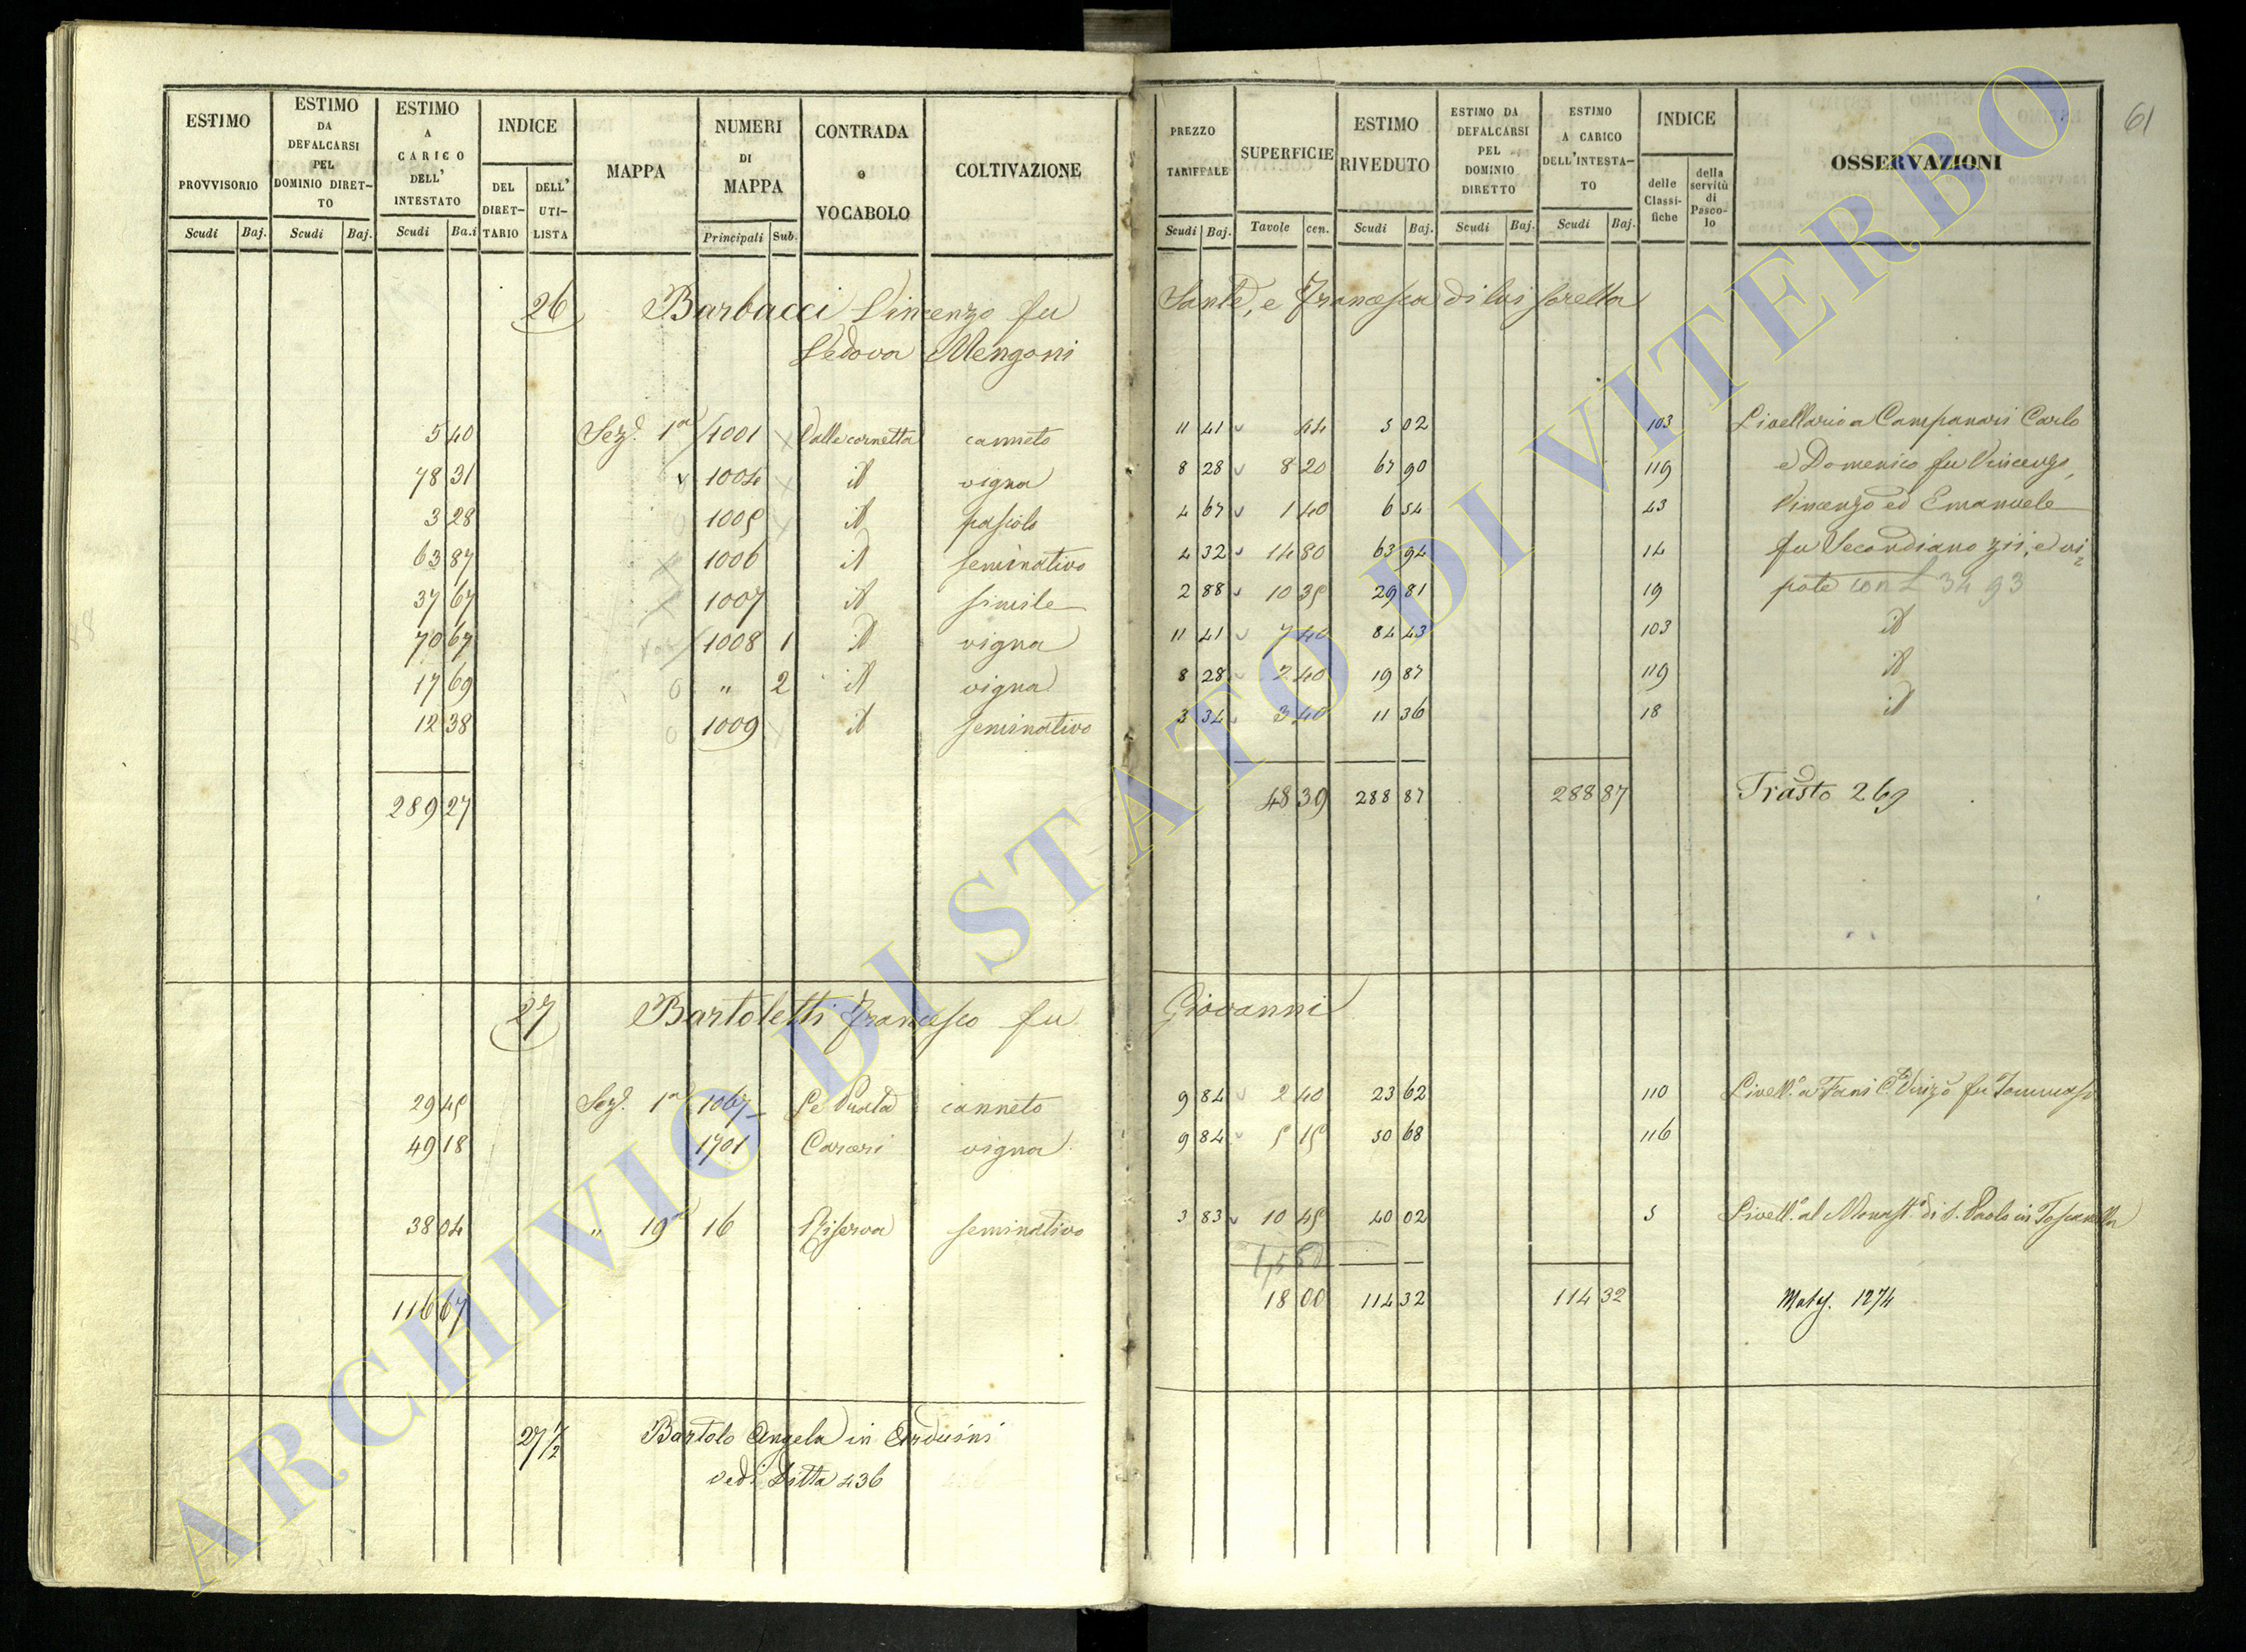 61
ESTIMO PROVVISORIO Scudi Baj.
ESTIMO DA DEFALCARSI PEL DOMINIO DIRET-TO Scudi Baj.
ESTIMO A CARICO DELL' INTESTATO Scudi Ba.i
INDICE DEL DIRET-TARIO DELL' UTI-LISTA
MAPPA
NUMERI DI MAPPA Principali Sub.
CONTRADA o VOCABOLO
COLTIVAZIONE
PREZZO TARIFFALE Scudi Baj.
SUPERFICIE Tavole cen.
ESTIMO RIVEDUTO Scudi Baj.
ESTIMO DA DEFALCARSI PEL DOMINIO DIRETTO Scudi Baj.
ESTIMO A CARICO DELL'INTESTA-TO Scudi Baj.
INDICE delle Classi-fiche della servitù di Pasco-lo
OSSERVAZIONI
26 Barbacci Vincenzo fu Sante, e Francesca di lui sorella
Vedova Mengoni
5 40 Sez.e 1a 1001 Valle cornetta canneto 11 41 44 5 02 103 Livellario a Campanari Carlo
78 31 1004 id vigna 8 28 8 20 67 90 119 e Domenico fu Vincenzo,
3 28 1005 id pascolo 4 67 1 40 6 54 43 Vincenzo ed Emanuele
63 87 1006 id seminativo 4 32 14 80 63 94 14 fu Secondiano zii, e ni=
37 67 1007 id simile 2 88 10 35 29 81 19 pote con £ 34 93
70 67 1008 1 id vigna 11 41 7 40 84 43 103 id
17 69 " 2 id vigna 8 28 2 40 19 87 119 id
12 38 1009 id seminativo 3 34 3 40 11 36 18 id
289 27 48 39 288 87 288 87 Trasto 269
27 Bartoletti Francesco fu Giovanni
29 45 Sez.e 1a 1067 Le Prata canneto 9 84 2 40 23 62 110 Livell.o a Fani C.te Vinz.o fu Tommaso
49 18 1701 Carceri vigna 9 84 5 15 50 68 116
38 04 " 19a 16 Riserva seminativo 3 83 10 45 40 02 5 Livell.o al Monast.o di S. Paolo in Toscanella
116 67 18 00 114 32 114 32 Maty. 1274
27 1/2 Bartolo Angela in Arduini
vedi Ditta 436
ARCHIVIO DI STATO DI VITERBO